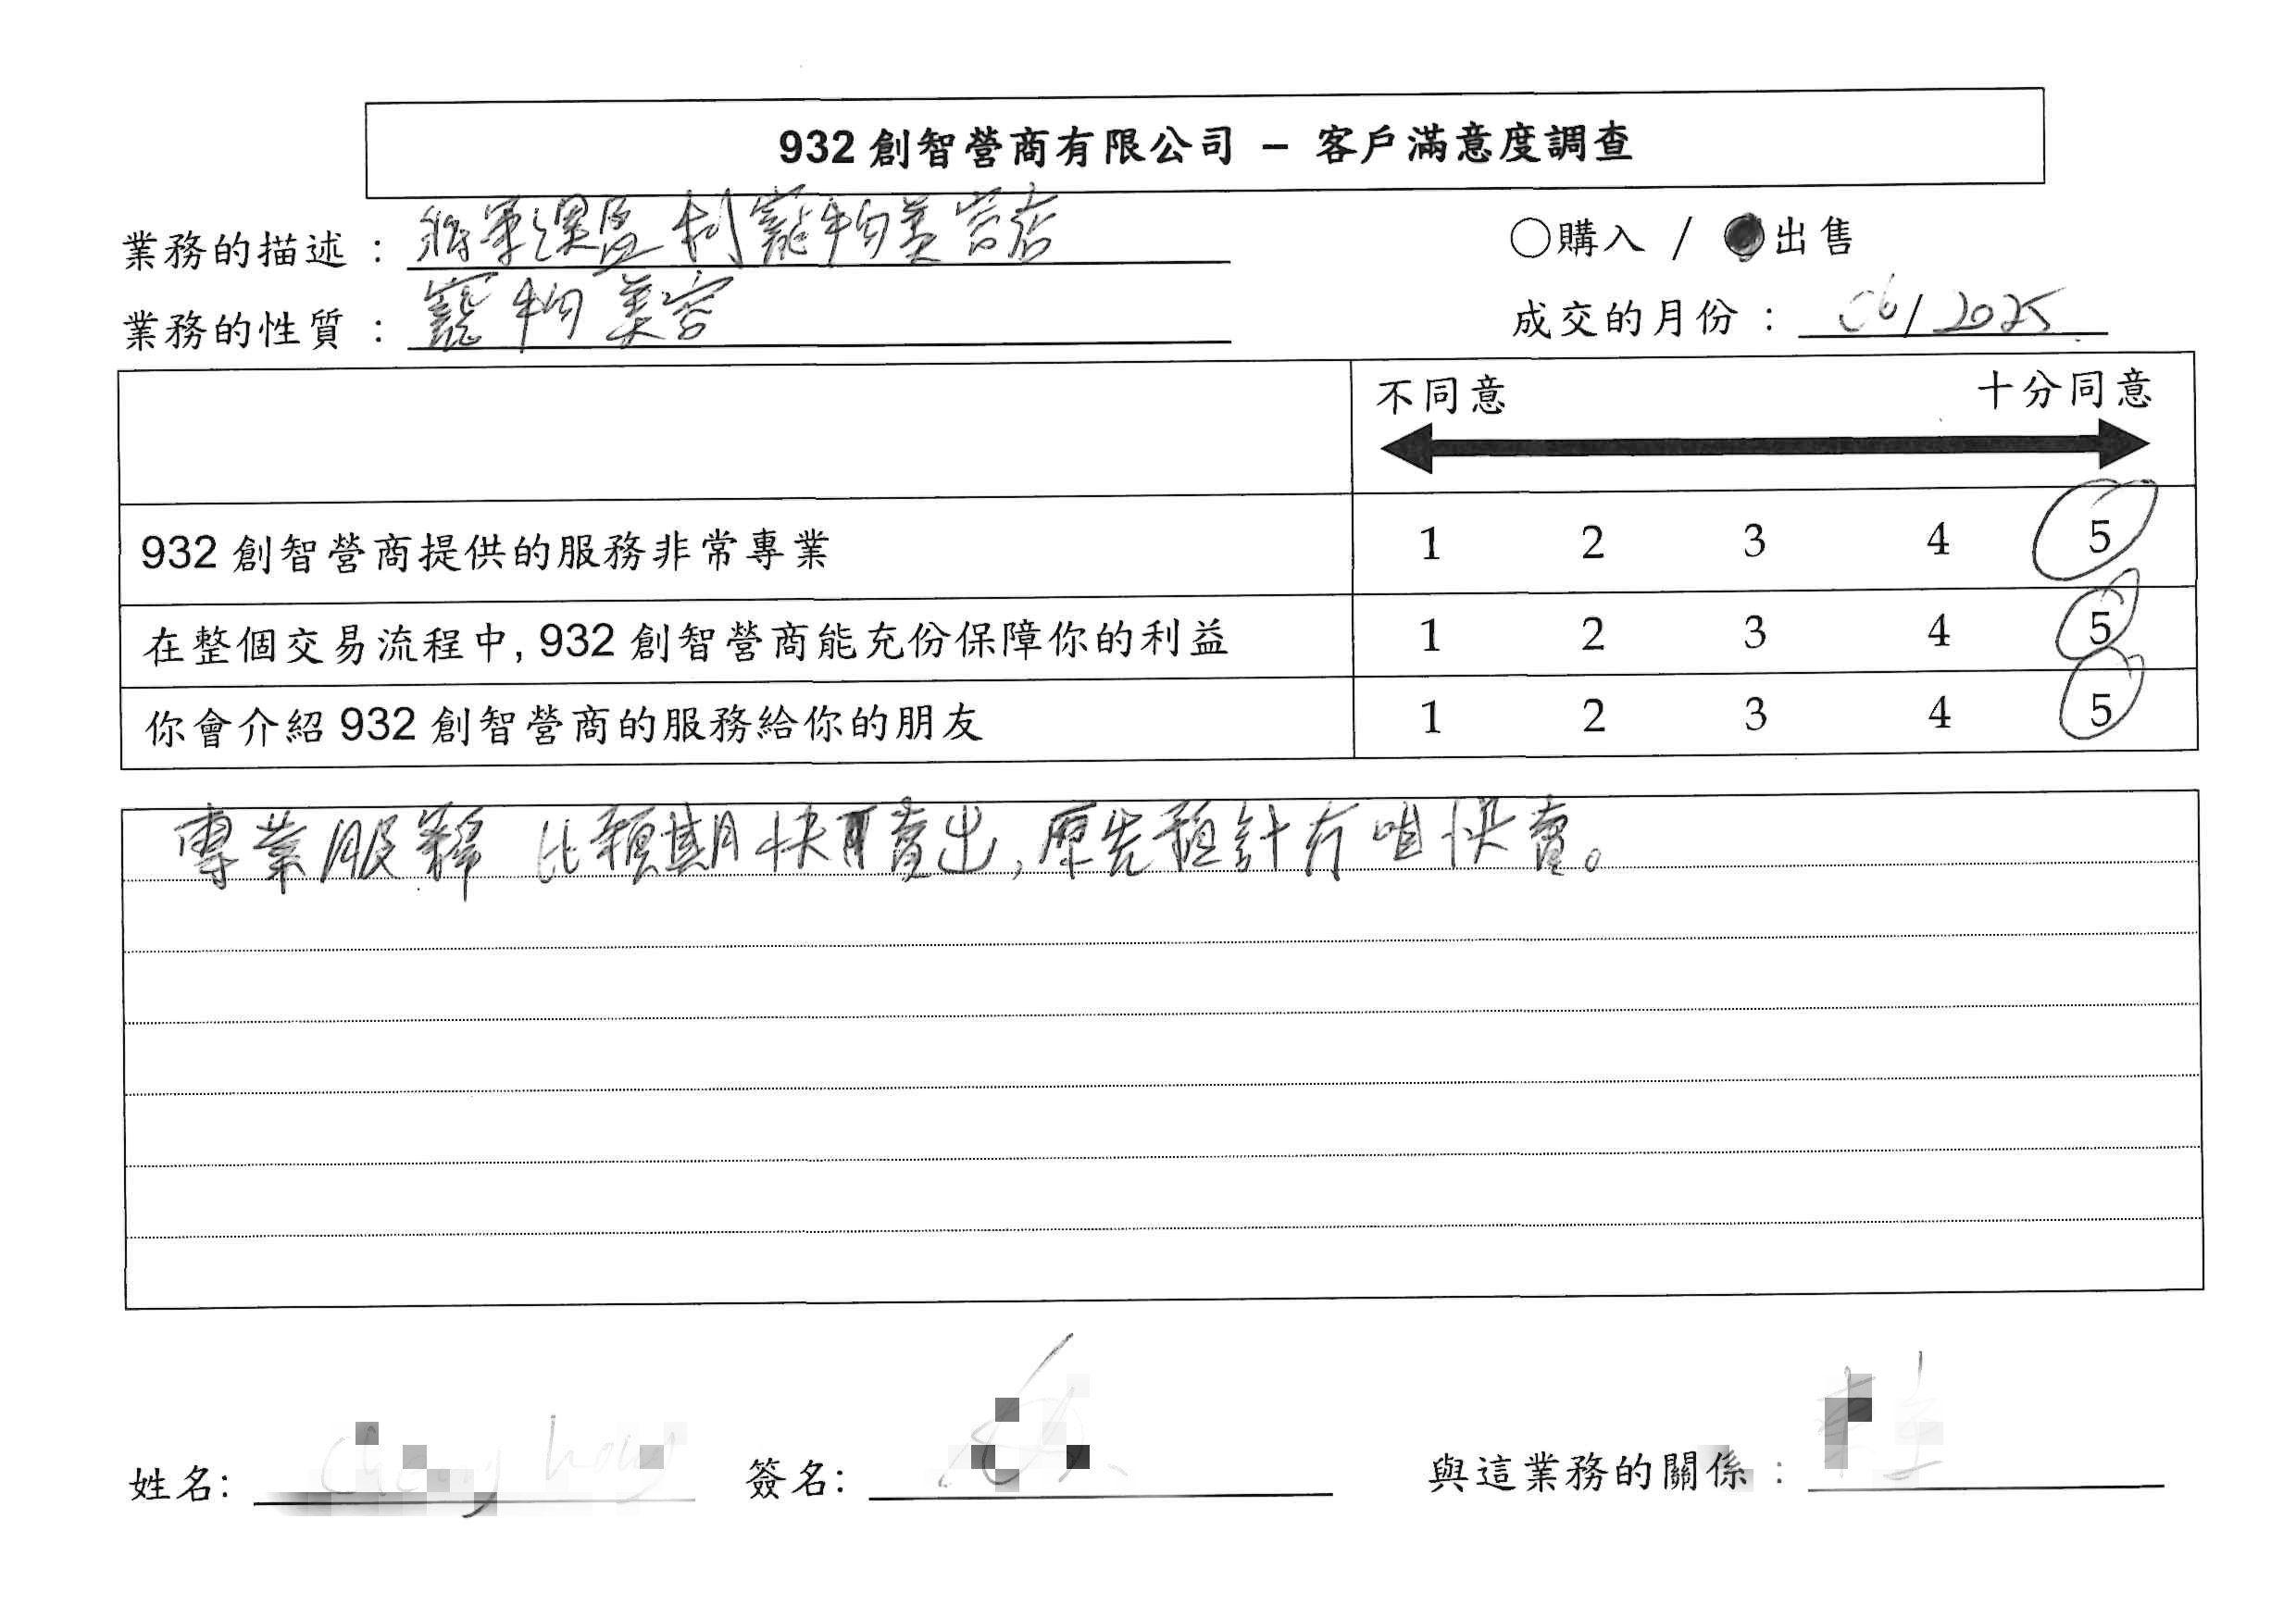 932 創智營商有限公司 – 客戶滿意度調查
業務的描述 : 將軍澳區 寵物美容店
○購入 / ●出售
業務的性質 : 寵物美容
成交的月份 : 06/2025
不同意 十分同意
932 創智營商提供的服務非常專業 1 2 3 4 5
在整個交易流程中, 932 創智營商能充份保障你的利益 1 2 3 4 5
你會介紹 932 創智營商的服務給你的朋友 1 2 3 4 5
專業服務 比預期快賣出, 原先預計冇咁快賣。
姓名: 簽名: 與這業務的關係 :